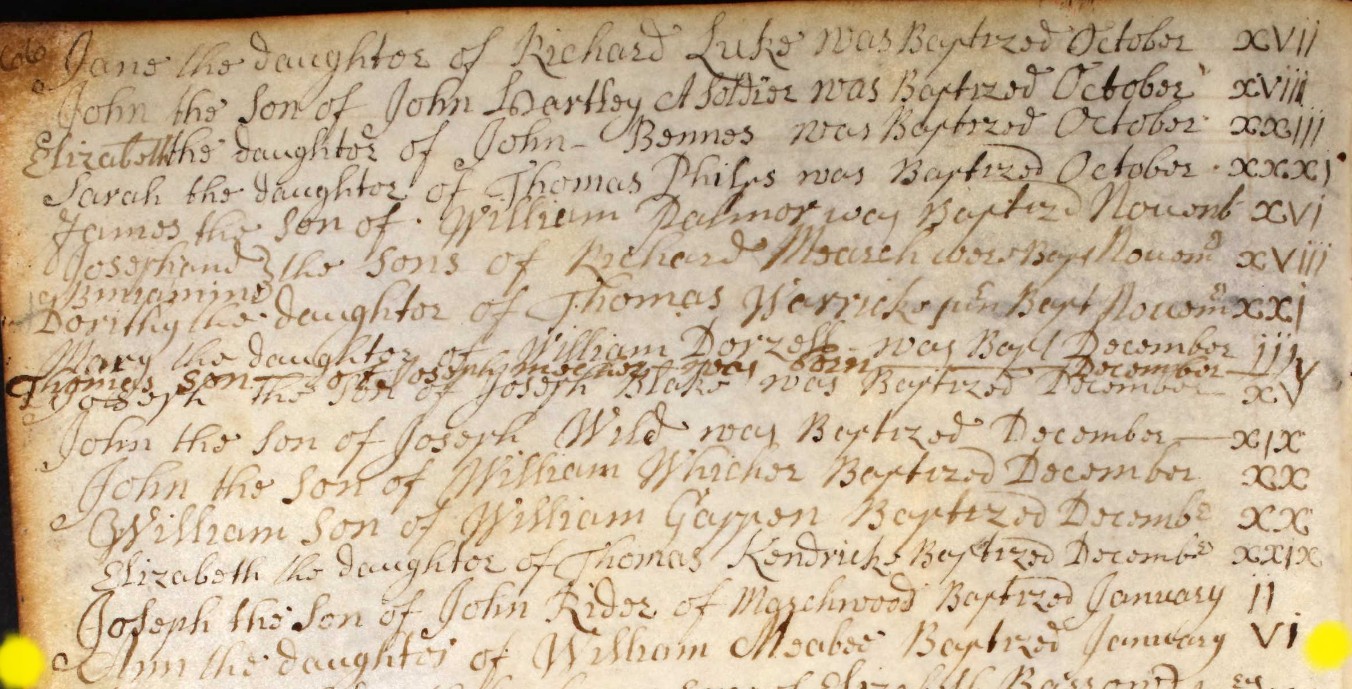 Jane the daughter of Richard Luke was Baptized October xvii
John the Son of John Hartley A Soldier was Baptized October xviii
Elizabeth the daughter of John Bennes was Baptized October xxiii
Sarah the daughter of Thomas Philps was Baptized October xxxi
James the Son of William Palmor was Baptizd Novemb xvi
Joseph and } the Sons of Richard Mearsh were Bapt Novemr xviii
Binjamine
Dorithy the daughter of Thomas Warricke Bapt Novemr xxi
Mary the daughter of William Dorzell was Bapt December iii
Thomas son of Joseph was born December V
Joseph the Son of Joseph Blake was Baptized December xv
John the Son of Joseph Wild was Baptized December xix
John the Son of William Whicher Baptized December xx
William Son of William Gappen Baptized Decembr xx
Elizabeth the daughter of Thomas Kendricke Baptized Decembr xxix
Joseph the Son of John Rider of Marchwood Baptized January ii
Ann the daughter of William Meabee Baptized January vi
of Elizabeth